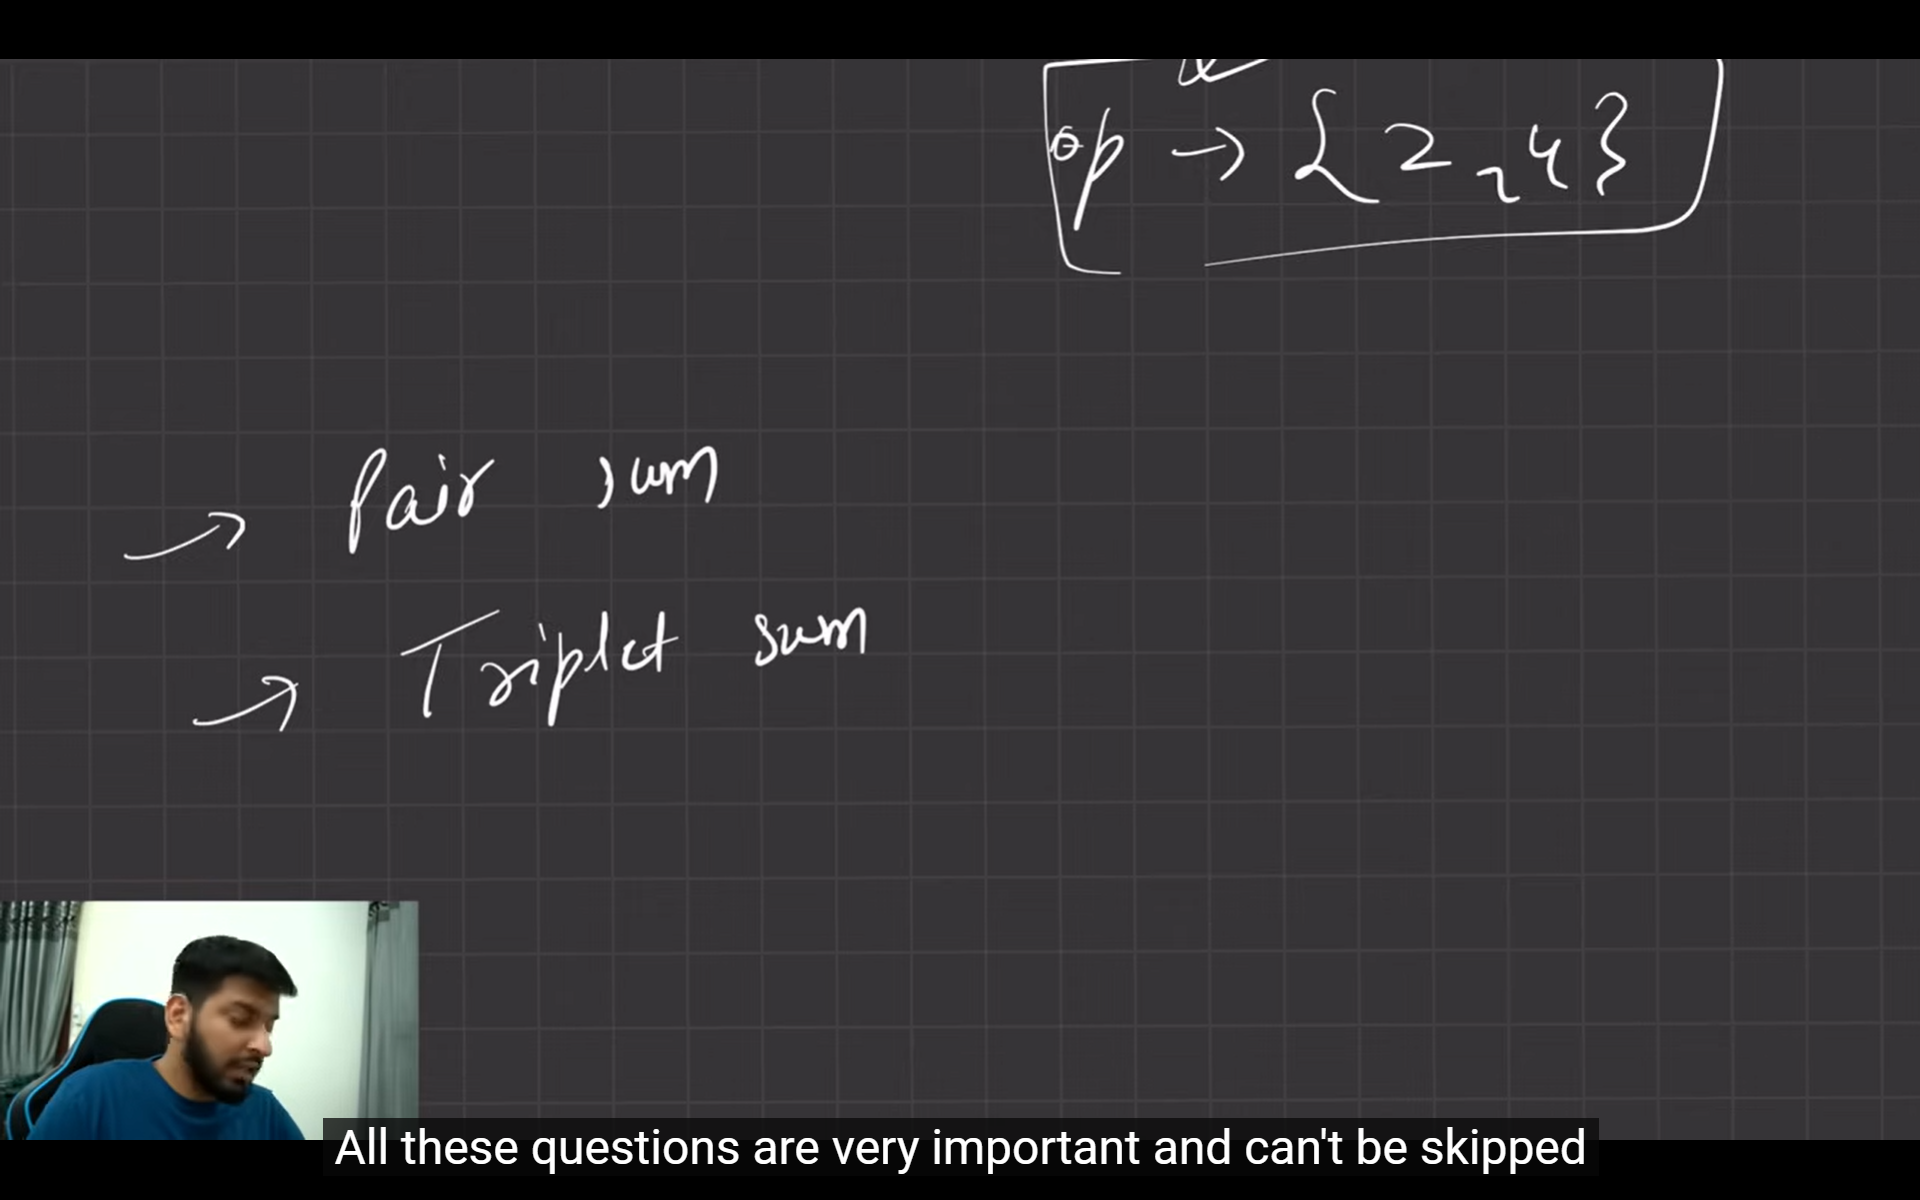 op → {2, 4}
→ Pair sum
→ Triplet sum
All these questions are very important and can't be skipped